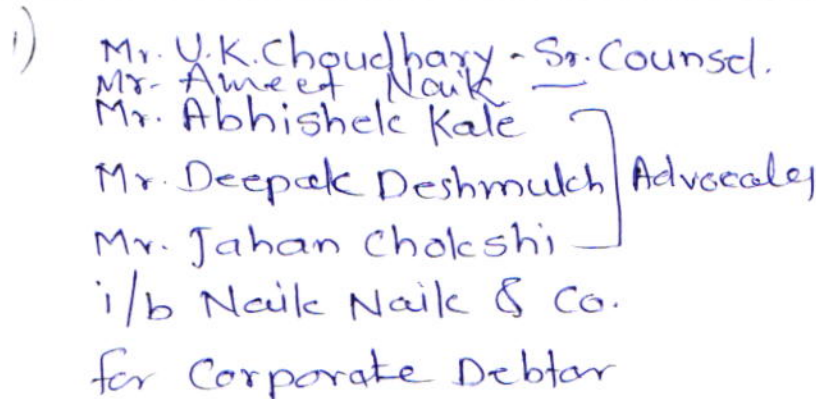 1) Mr. U.K. Choudhary - Sr. Counsel.
Mr. Ameet Naik —
Mr. Abhishek Kale
Mr. Deepak Deshmukh ] Advocates
Mr. Jahan Chokshi
i/b Naik Naik & Co.
for Corporate Debtor